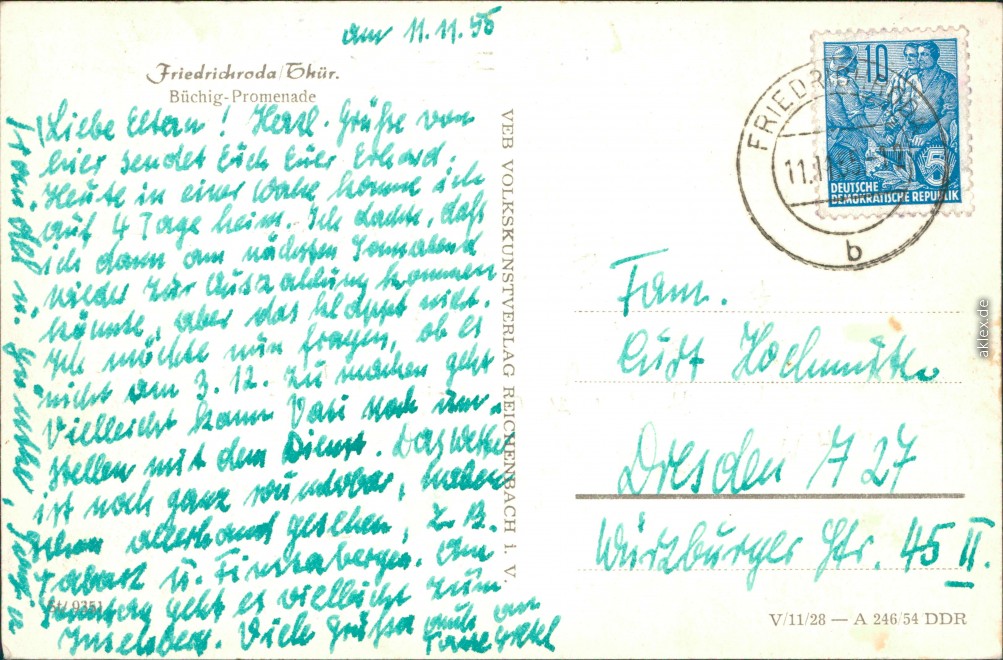 am 11.11.55
Friedrichroda/Thür.
Büchig-Promenade
Liebe Eltern! Herzl. Grüße von
hier sendet Euch Euer Erhard.
Heute in einer Woche komme ich
auf 4 Tage heim. Ich dachte, daß
ich dann am nächsten Sonnabend
wieder zur Auszahlung kommen
könnte, aber das klappt nicht.
Ich möchte nun fragen, ob es
nicht am 3.12. zu machen geht
Vielleicht kann Vati noch um-
stellen mit dem Dienst. Das Wetter
ist noch ganz wunderbar, haben
schon allerhand gesehen, z.B.
Tabarz u. Finsterbergen. Am
Sonntag geht es vielleicht zum
Inselsberg. Viele Grüße auch an
VEB VOLKSKUNSTVERLAG REICHENBACH I. V.
10
5
DEUTSCHE
DEMOKRATISCHE REPUBLIK
b
Fam.
Curt Hochmuth
Dresden A 27
Würzburger Str. 45 II.
V/11/28 — A 246/54 DDR
aklex.de